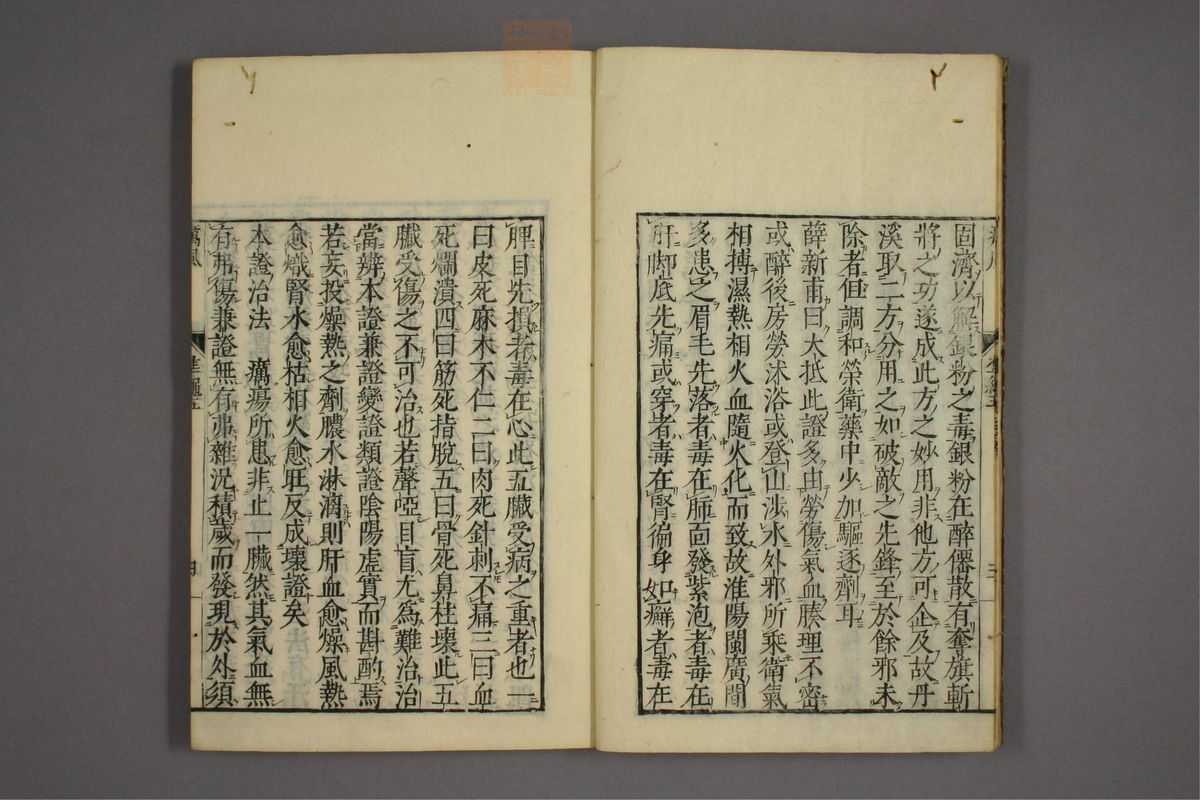 固濟以解銀粉之毒銀粉在醉僊散有奪旗斬
將之功遂成此方之妙用非他方可企及故丹
溪取二方分用之如破敵之先鋒至於餘邪未
除者但調和榮衛藥中少加驅逐劑耳
薛新甫曰大抵此證多由勞傷氣血腠理不密
或醉後房勞沐浴或登山涉水外邪所乘衛氣
相搏濕熱相火血隨火化而致故淮陽閩廣間
多患之眉毛先落者毒在肺面發紫泡者毒在
肝脚底先痛或穿者毒在腎徧身如癬者毒在
脾目先損者毒在心此五臟受病之重者也一
曰皮死麻木不仁二曰肉死針刺不痛三曰血
死爛潰四曰筋死指脫五曰骨死鼻柱壞此五
臟受傷之不可治也若聲啞目盲尤為難治治
當辨本證兼證變證類證陰陽虛實而斟酌焉
若妄投燥熱之劑膿水淋漓則肝血愈燥風熱
愈熾腎水愈枯相火愈旺反成壞證矣
本證治法 癘瘍所患非止一臟然其氣血無
有弗傷兼證無有弗雜況積歲而發現於外須
癘風
四